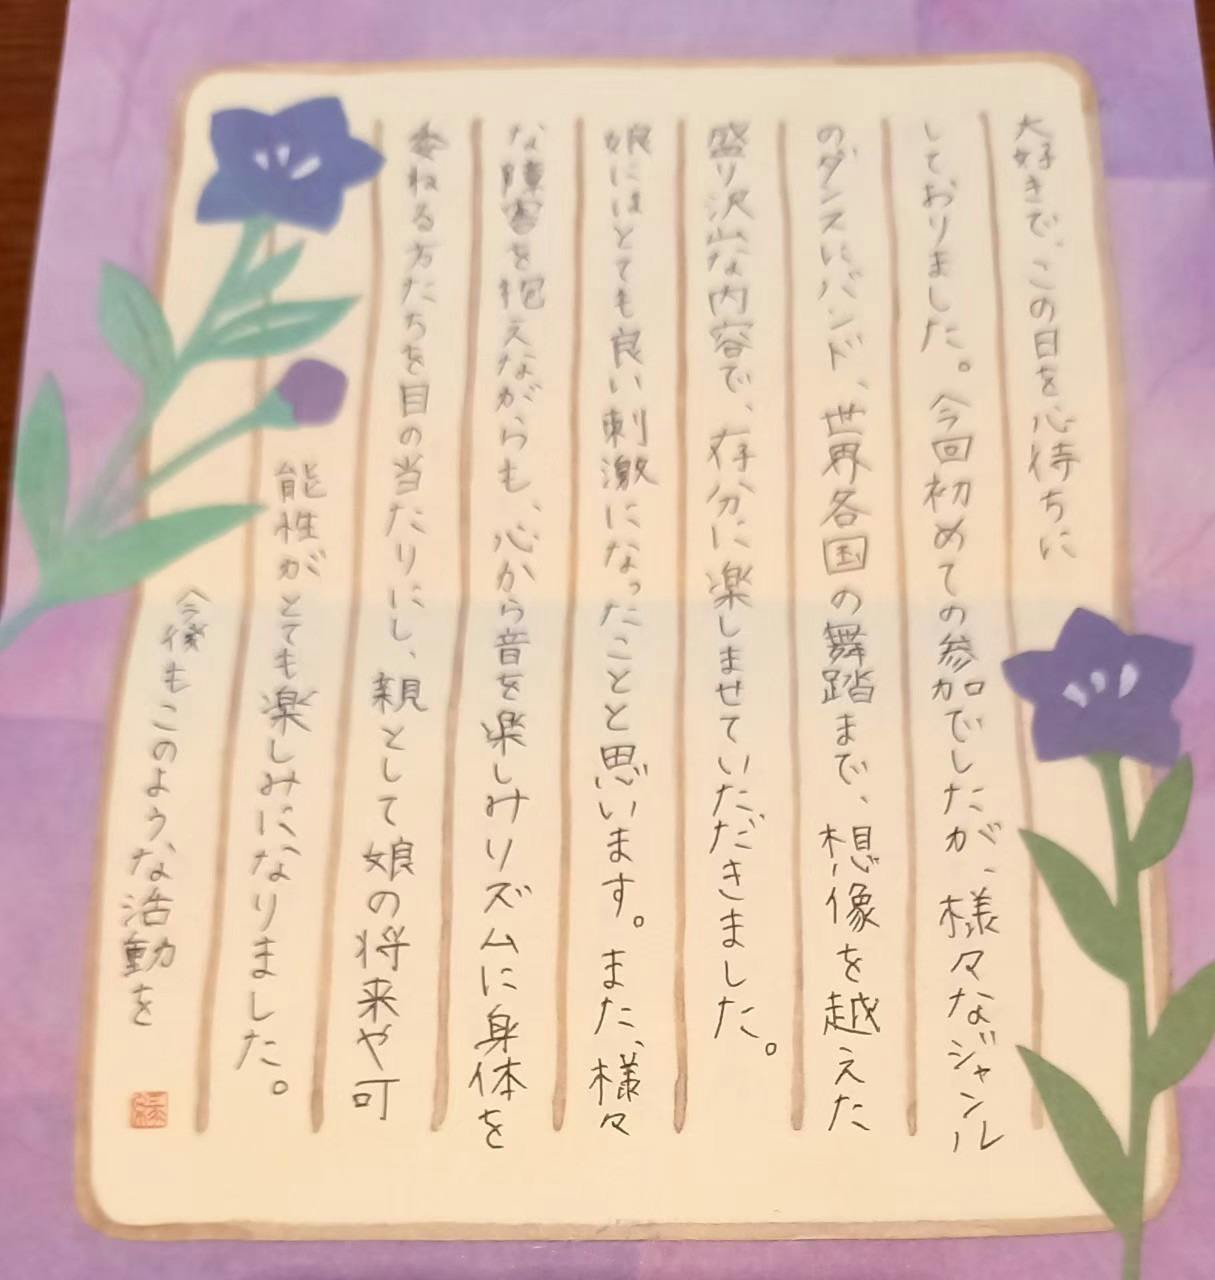 大好きで、この日を心待ちに
しておりました。今回初めての参加でしたが、様々なジャンル
のダンスにバンド、世界各国の舞踏まで、想像を越えた
盛り沢山な内容で、存分に楽しませていただきました。
娘にはとても良い刺激になったことと思います。また、様々
な障害を抱えながらも、心から音を楽しみリズムに身体を
委ねる方たちを目の当たりにし、親として娘の将来や可
能性がとても楽しみになりました。
今後もこのような活動を